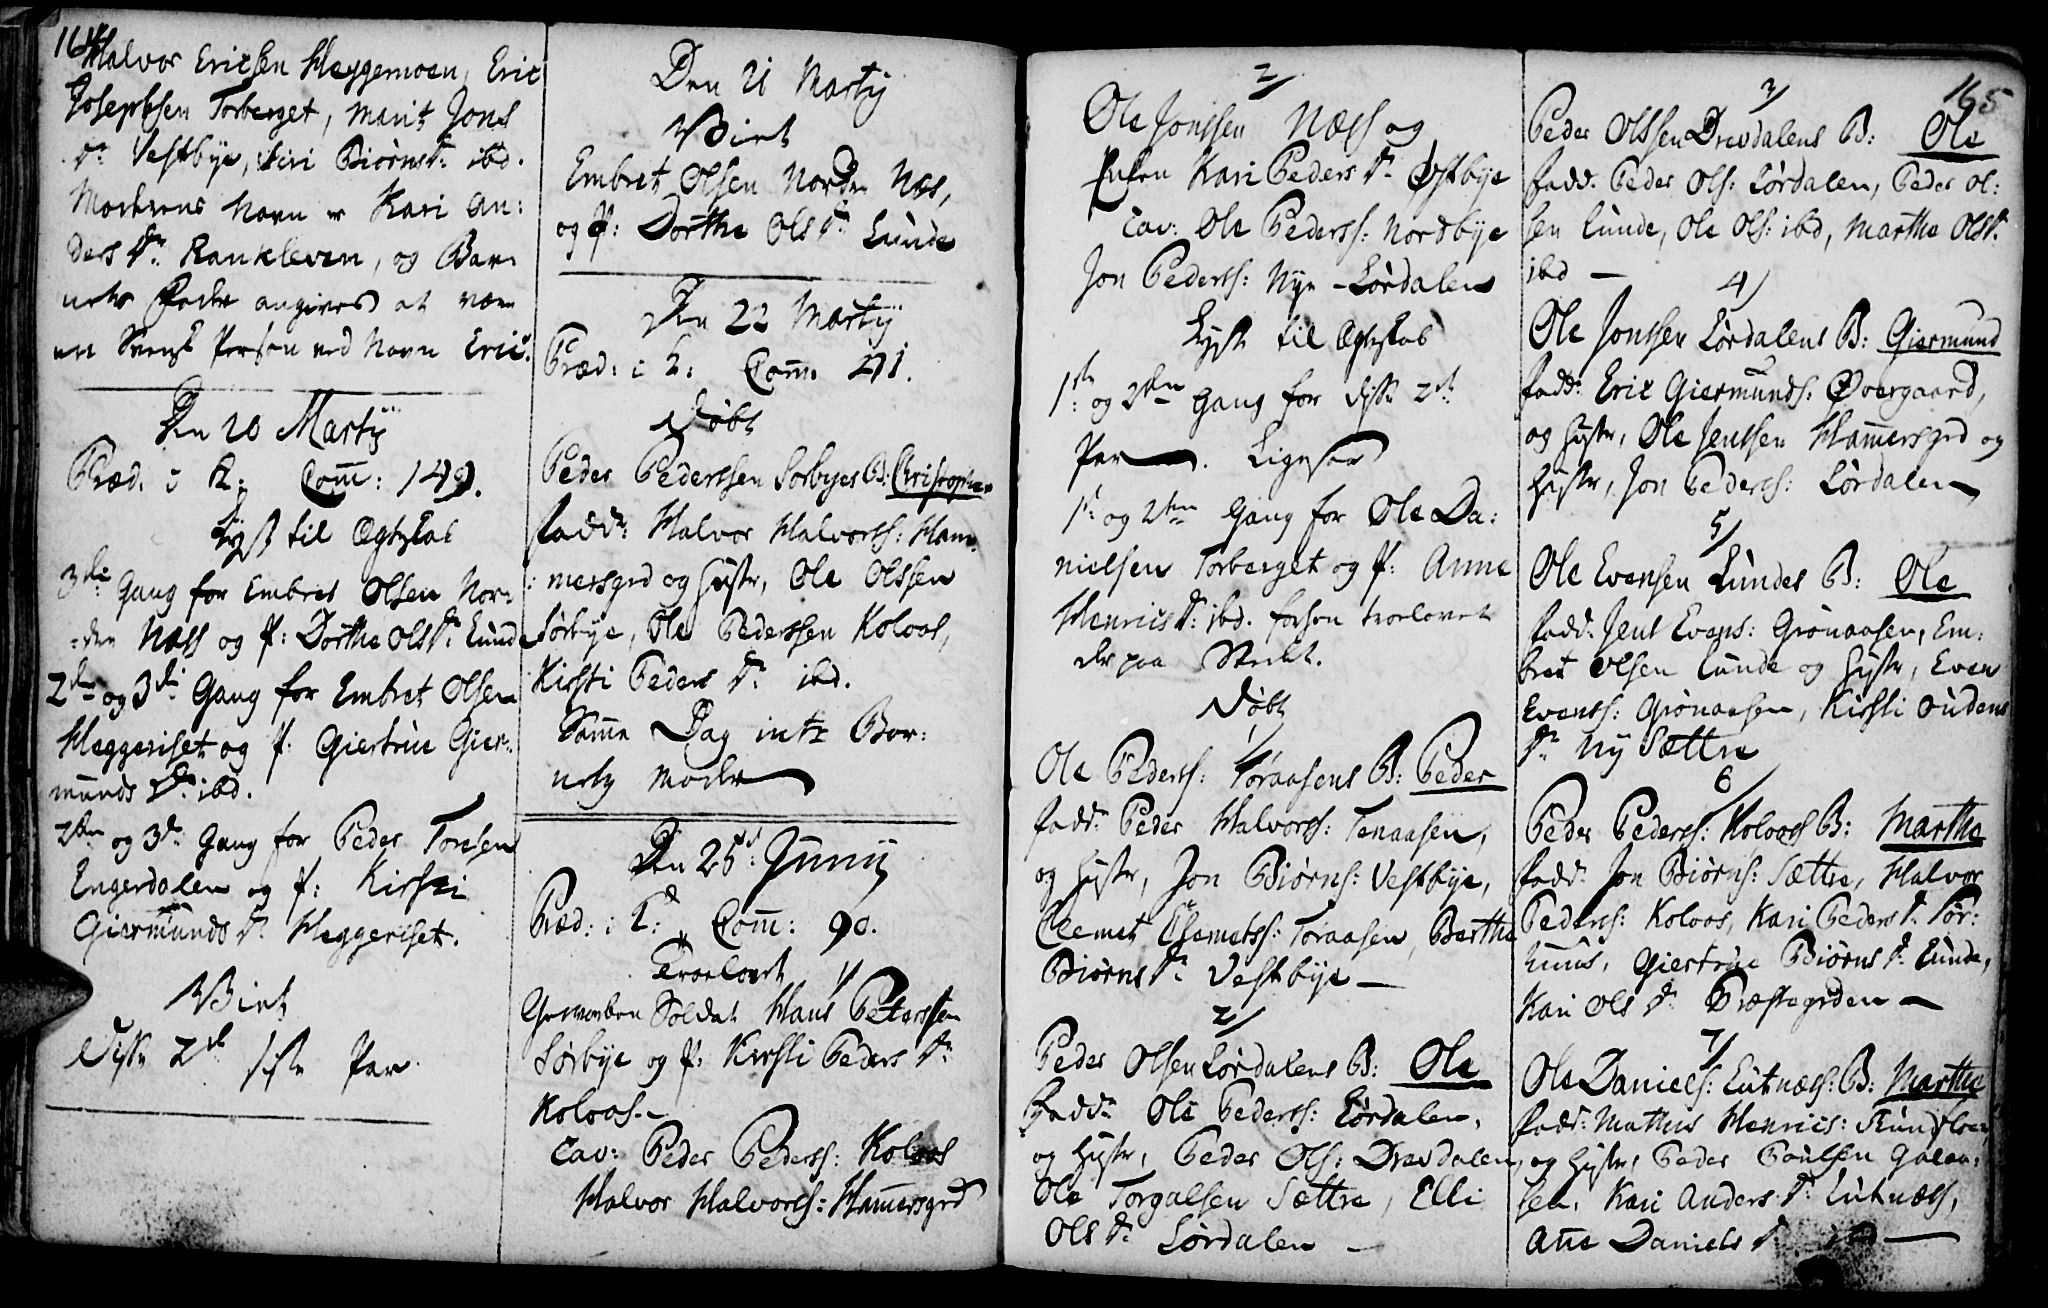 164
Halvor Ericsen Heggemoen, Eric
Josephsen Torberget, Marit Jons
Dr. Vestbye, Siri Biørns Dr. ibd.
Moderens Navn er Kari An:
ders Dr. Rankleven, og Bar:
nets Fader angives at være
en Svensk Person ved Navn Eric.
Den 20 Martij
Præd. i K: Com̄: 149.
Lyst til Ægteskab
3die Gang for Embret Olsen Nor:
den Næss og P: Dorthe Ols Dr. Lunde
2den og 3die Gang for Embret Olsen
Heggeriset og P: Giertrue Gier:
munds Dr. ibd.
2den og 3die Gang for Peder Toresen
Engerdalen og P: Kirsti
Giermunds Dr. Heggeriset.
Wiet
Disse 2de siste Par.
Den 21 Martij
Wiet
Embret Olsen Norden Næs,
og P: Dorthe Ols Dr. Lunde
Den 22 Martij
Præd: i K: Com̄. 71.
Døbt
Peder Pederssen Sorbyes B: Christopher
Fadd: Halvor Halvorss: Ham:
mersgrd og Hustr, Ole Olssen
Sørbye, Ole Pederssen Koloos,
Kirsti Peders Dr. ibd.
Sam̄e Dag intr. Bar:
nets Moder
Den 25de Junij
Præd: i K: Com̄: 90.
Troelovet 1/
Gevorben Soldat Hans Peterssen
Sørbye og P: Kirsti Peders Dr.
Koloos.
Cav: Peder Pederss: Koloos
Halvor Halvorss: Ham̄ersgrd
2/
Ole Jonssen Næss og
Enken Kari Peders Dr. Østbye
Cav: Ole Pederss: Nordbye
Jon Pederss: Nye-Lørdalen
Lyst til Ægteskab
1ste og 2den Gang for disse 2de
Par. Ligesaa
1ste og 2den Gang for Ole Da:
nielsen Torberget og P: Anne
Henrics Dr. ibd. forhen troelovet
der paa Stedet.
Døbt
1/
Ole Pederss: Toraasens B: Peder
Fadd: Peder Halvorss: Tenaasen,
og Hustr, Jon Biørns: Vestbye,
Clemet Clemetss: Toraasen, Berthe
Biørns Dr. Vestbye
2/
Peder Olsen Lørdalens B: Ole
Fadd: Ole Pederss: Lørdalen,
og Hustr, Peder Ols: Drevdalen,
Ole Torgalsen Sættre, Elli
Ols Dr. Lørdalen
165
3/
Peder Olssen Drevdalens B: Ole
Fadd: Peder Ols: Lørdalen, Peder Ol:
sen Lunde, Ole Ols: ibd, Marthe Ols Dr.
ibd
4/
Ole Jonssen Lørdalens B: Giermund
Fadd: Eric Giermunds: Øvergaard,
og Hustr, Ole Jenssen Ham̄ersgrd og
Hustr, Jon Pederss: Lørdalen
5/
Ole Evensen Lundes B: Ole
Fadd: Jens Evens: Grønaasen, Em:
bret Olsen Lunde og Hustr, Even
Evenss: Grønaasen, Kirsti Oudens
Dr. Ny Sættre
6/
Peder Pederss: Koloos B: Marthe
Fadd: Jon Biørns: Sættre, Halvor
Pederss: Koloos, Kari Peders Dr. Tør:
huus, Giertrue Biørns Dr. Lunde,
Kari Ols Dr. Præstegrden
7/
Ole Daniels: Lutnæs: B: Marthe
Fadd: Mathis Henrics: Rundfloen
og Hustr, Peder Poulsen Galaa:
sen, Kari Anders Dr. Lutnæs,
An̄e Daniels Dr. ibd